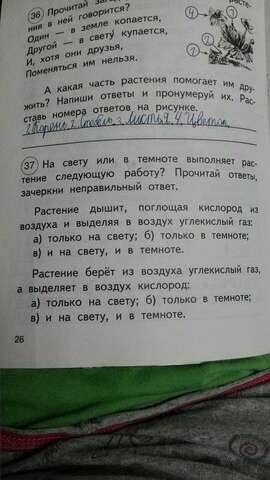 36 Прочитай
расте-
ния в ней говорится?
Один — в земле копается,
Другой — в свету купается,
И, хотя они друзья,
Поменяться им нельзя.
4
2
А какая часть растения помогает им дру-
жить? Напиши ответы и пронумеруй их. Рас-
ставь номера ответов на рисунке.
Корень, 2. Стебель, 3. Листья, 4. Цветок
37 На свету или в темноте выполняет рас-
тение следующую работу? Прочитай ответы,
зачеркни неправильный ответ.
Растение дышит, поглощая кислород из
воздуха и выделяя в воздух углекислый газ:
а) только на свету; б) только в темноте;
в) и на свету, и в темноте.
Растение берёт из воздуха углекислый газ,
а выделяет в воздух кислород:
а) только на свету; б) только в темноте;
в) и на свету, и в темноте.
26